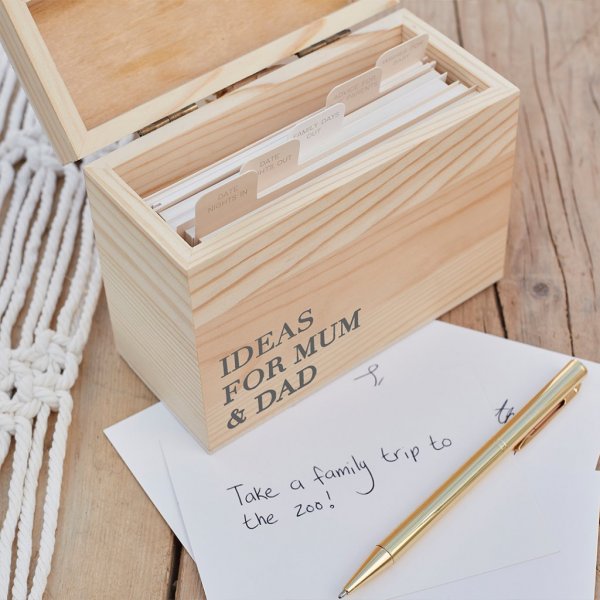 ADVICE FOR
PARENTS
FAMILY DAYS
OUT
DATE
NIGHTS OUT
DATE
NIGHTS IN
IDEAS
FOR MUM
& DAD
Take a family trip to
the zoo!